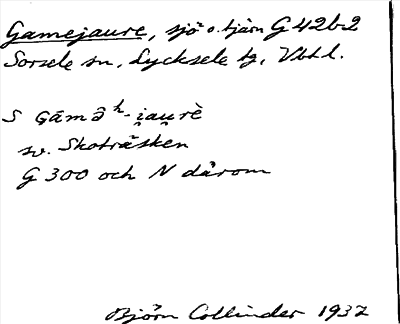 Gamejaure, sjö o. tjärn G 42b2
Sorsele sn, Lycksele tg, Vbtl.
S Gāmə̂ʰ-i̯au̯rè
sv. Skoträsken
G 300 och N därom
Björn Collinder 1937